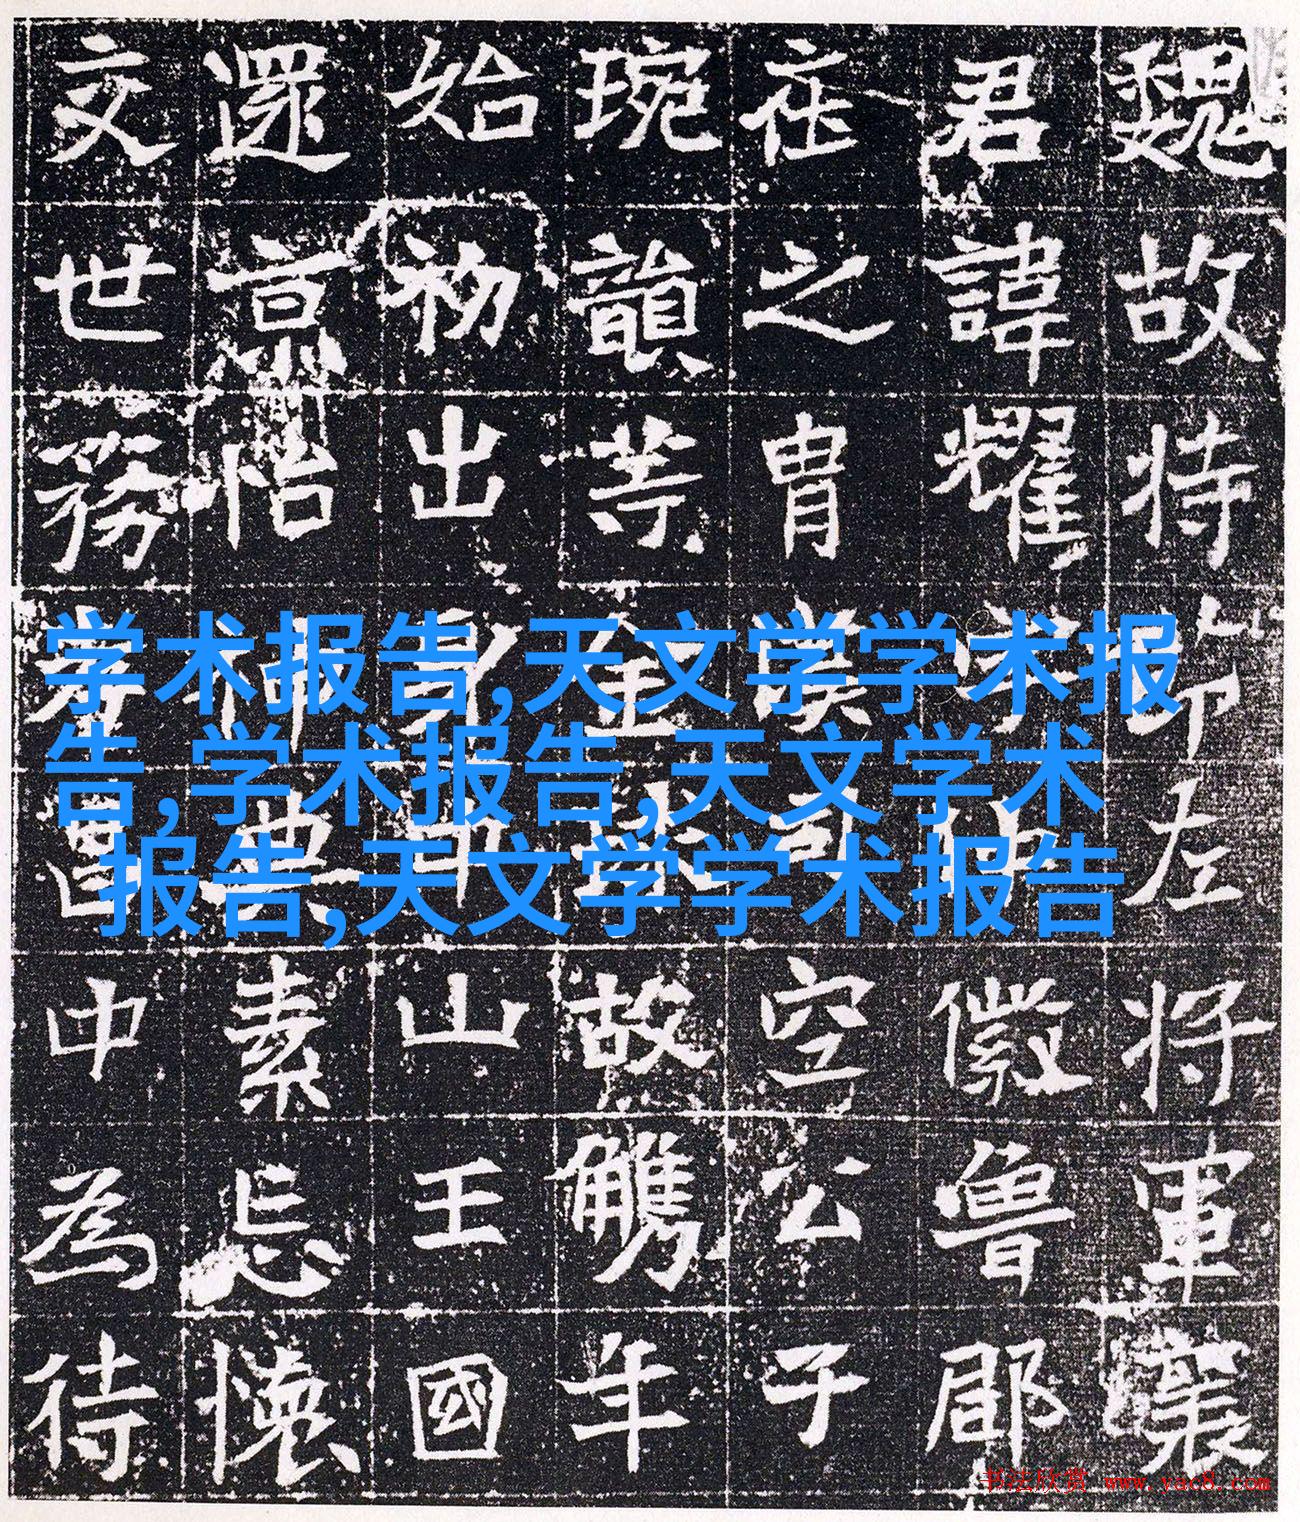 魏故持左將軍襄
君諱耀徽魯郡
之冑漢空公子
琬韻等故年
始初出山王國
還京怡素忘懷
交世務中為待
学术报告,天文学学术报
告,学术报告,天文学术
报告,天文学学术报告
书法欣赏 www.yac8.com